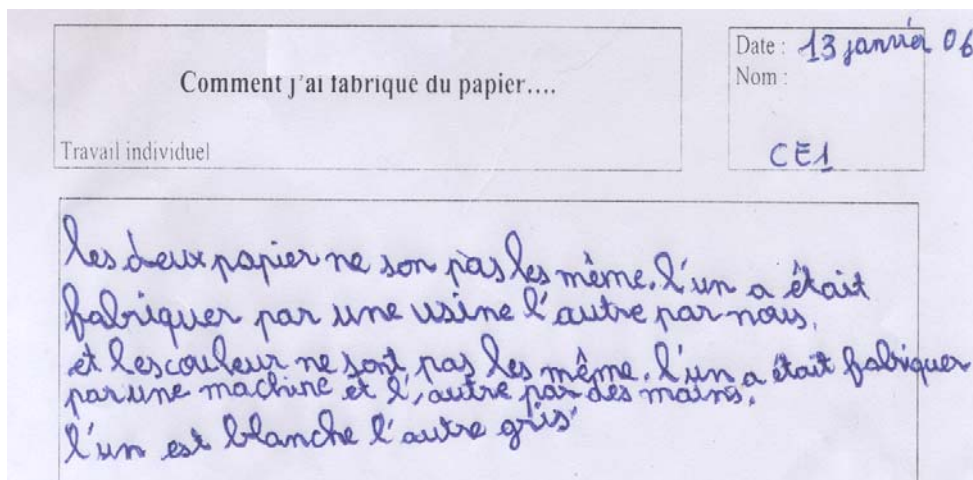 Comment j'ai fabriqué du papier....
Travail individuel
Date : 13 janvier 06
Nom :
CE1
les deux papier ne son pas les même. l'un a était
fabriquer par une usine l'autre par nous,
et les couleur ne sont pas les même. l'un a était fabriquer
par une machine et l'autre par des mains.
l'un est blanche l'autre gris